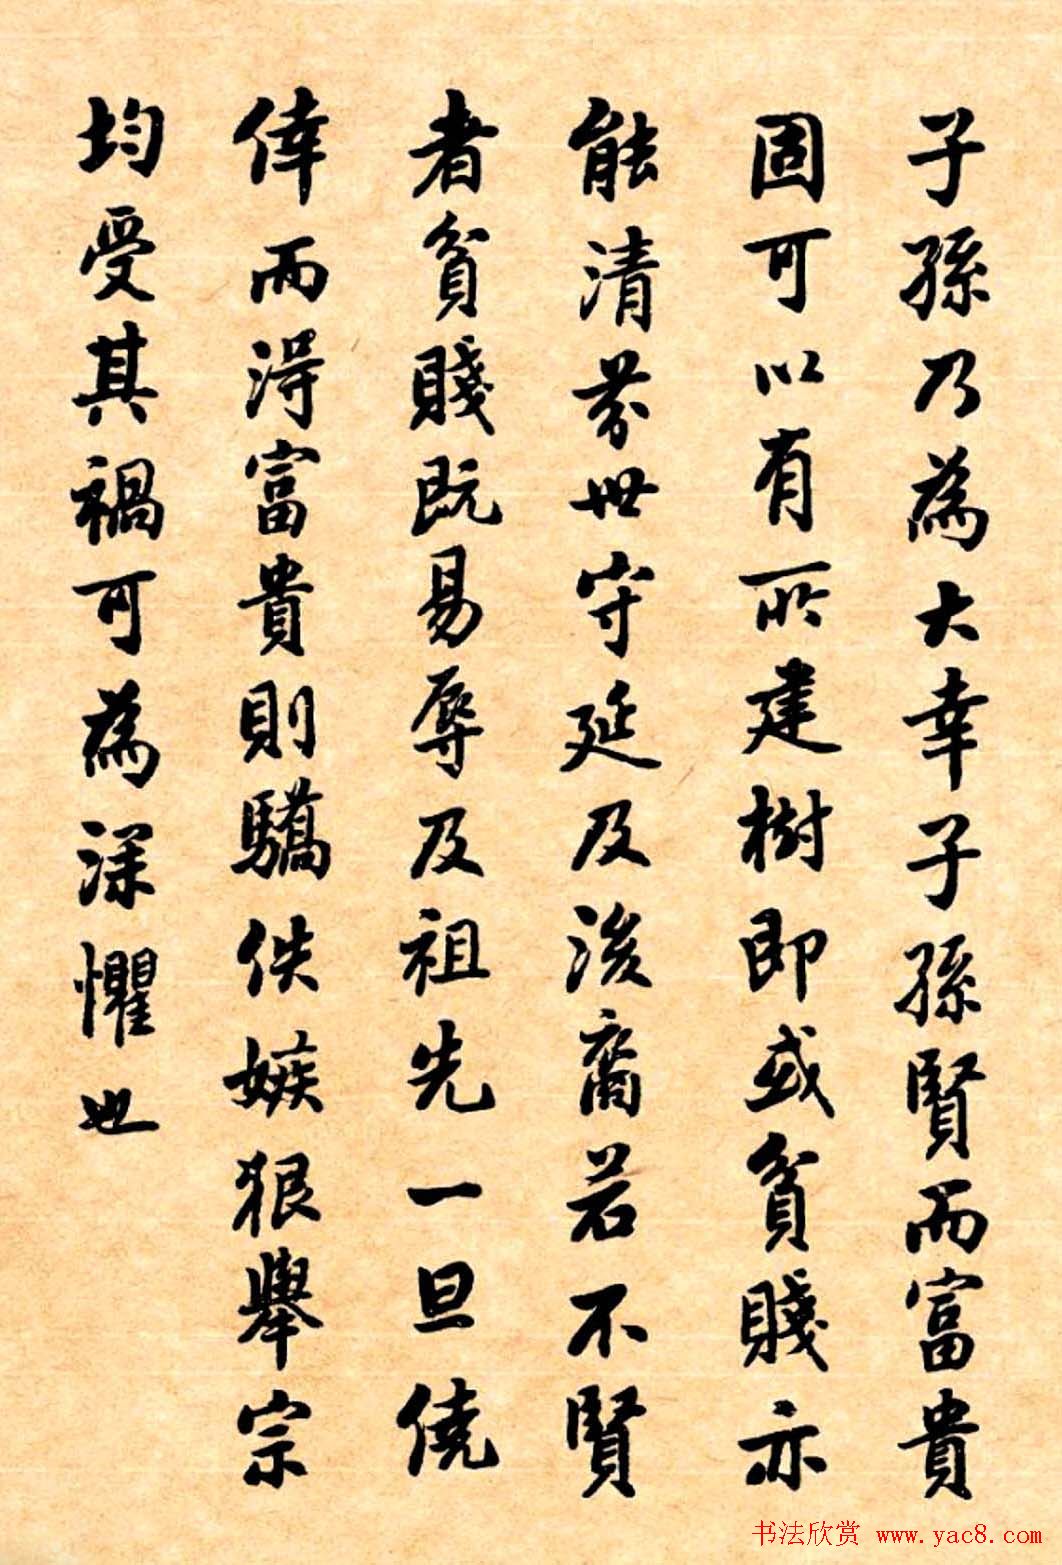 子孫乃為大幸子孫賢而富貴
固可以有所建樹即或貧賤亦
能清芬世守延及後裔若不賢
者貧賤既易辱及祖先一旦僥
倖而得富貴則驕佚嫉狠舉宗
均受其禍可為深懼也
书法欣赏 www.yac8.com